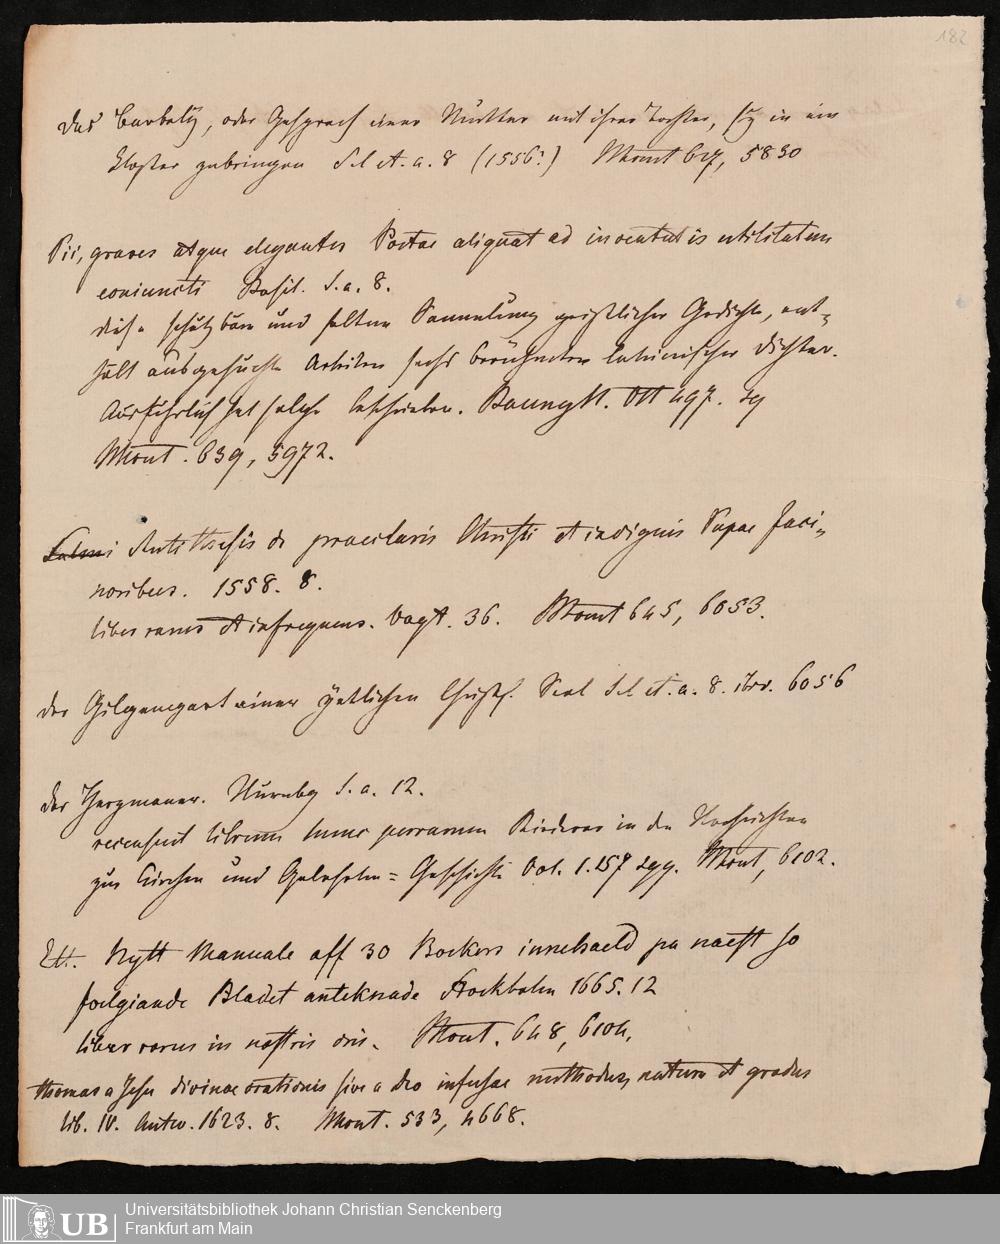 182
Das Barbaly, oder Gesprech einer Mutter mit ihrer Tochter, sy in ein
Closter zubringen S. l. et. a. 8 (1556?) Mront 617, 5830
Pii, graves atque elegantes Poetae aliquot ad iuventutis utilitatem
coniuncti Basil. s. a. 8.
diese schätzbare und seltne Sammlung geistlicher Gedichte, ent-
hält ausgesuchte Arbeiten sechs berühmter lateinischer Dichter.
Ausführlich hat solche beschrieben. Baumgtt. VII 497. sq
Mront. 639, 5972.
Antithesis de praeclaris Christi et indignis Papae faci-
noribus. 1558. 8.
liber rarus et infrequens. Vogt. 36. Mront 645, 6053.
der Gilgengart einer yetlichen Christl. Seel S. l. et. a. 8. ibid. 6056
Der Hergmaner. Nürnbg s. a. 12.
recensuit librum hunc perrarum Riederer in den Nachrichten
zur Kirchen und Gelehrten = Geschichte Vol. 1. 157 sqq. Mront, 6102.
Ett. Nytt Manuale aff 30 Boekers innehaeld pa naest so
foelgiande Bladet anteknade Stockholm 1665. 12
liber rarus in nostris oris. Mront. 648, 6104.
Thomas a Jesu divinae orationis sive a deo infusae methodus, natura et gradus
lib. IV. Antw. 1623. 8. Mront. 533, 4668.
UB
Universitätsbibliothek Johann Christian Senckenberg
Frankfurt am Main